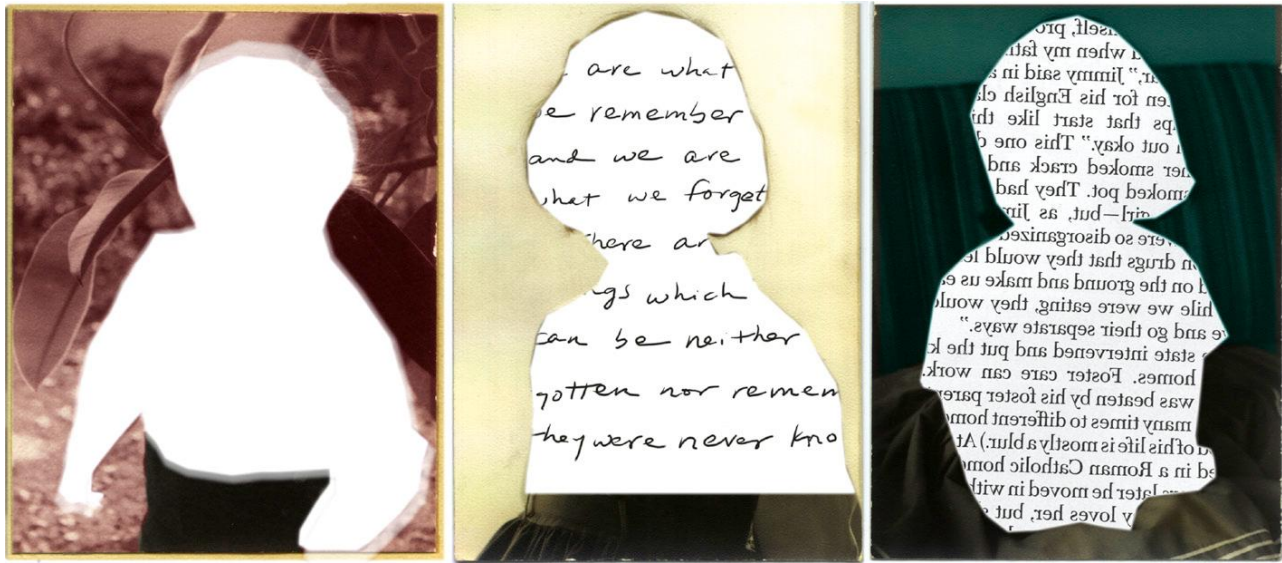 are what
remember
and we are
what we forget
there ar
ngs which
can be neither
gotten nor remem
they were never kno
self, pro
when my fath
Jimmy said in a
for his English cla
that start like thi
out okay.” This one d
her smoked crack and
smoked pot. They had
girl—but, as Jim
were so disorganized
on drugs that they would le
on the ground and make us ea
hile we were eating, they would
ve and go their separate ways.”
state intervened and put the k
homes. Foster care can work.
was beaten by his foster paren
many times to different home
of his life is mostly a blur.) At
ed in a Roman Catholic home
later he moved in with
y loves her, but